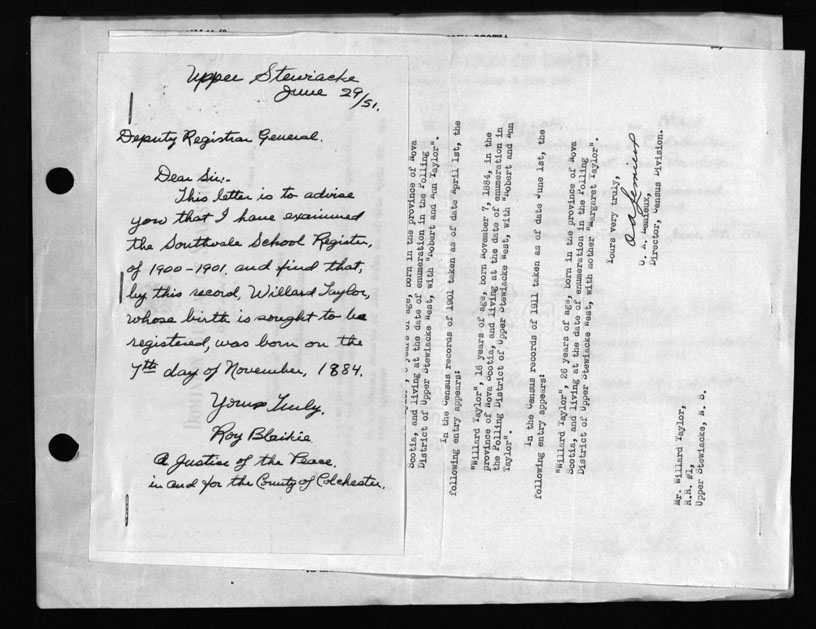 Upper Stewiacke
June 29/51.
Deputy Registrar General.
Dear Sir:-
This letter is to advise
you that I have examined
the Southvale School Register,
of 1900-1901, and find that,
by this record, Willard Taylor,
whose birth is sought to be
registered, was born on the
7th day of November, 1884.
Yours Truly,
Roy Blaikie
A Justice of the Peace,
in and for the County of Colchester.
Scotia, and living at the date of enumeration in the Polling
District of Upper Stewiacke West, with "Robert and Ann Taylor".
In the Census records of 1901 taken as of date April 1st, the
following entry appears:
"Willard Taylor". 16 years of age, born November 7, 1884, in the
province of Nova Scotia, and living at the date of enumeration in
the Polling District of Upper Stewiacke West, with "Robert and Ann
Taylor".
In the Census records of 1911 taken as of date June 1st, the
following entry appears:
"Willard Taylor", 26 years of age, born in the province of Nova
Scotia, and living at the date of enumeration in the Polling
District of Upper Stewiacke West, with mother "Margaret Taylor".
Yours very truly,
O. A. Lemieux,
Director, Census Division.
Mr. Willard Taylor,
R.R. #1,
Upper Stewiacke, N. S.